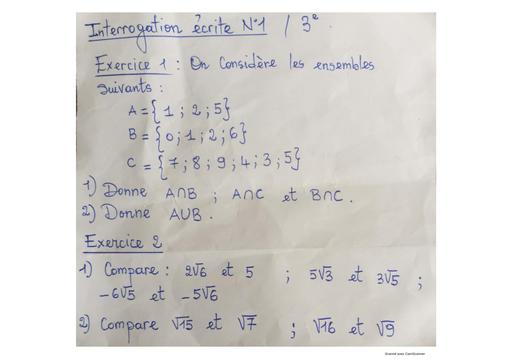 Interrogation écrite N°1 / 3e.
Exercice 1 : On Considère les ensembles
suivants :
A = { 1 ; 2 ; 5}
B = {0 ; 1 ; 2 ; 6}
C = {7 ; 8 ; 9 ; 4 ; 3 ; 5}
1) Donne A∩B ; A∩C et B∩C.
2) Donne A∪B.
Exercice 2
1) Compare : 2√6 et 5 ; 5√3 et 3√5 ;
-6√5 et -5√6
2) Compare √15 et √7 ; √16 et √9
Scanné avec CamScanner